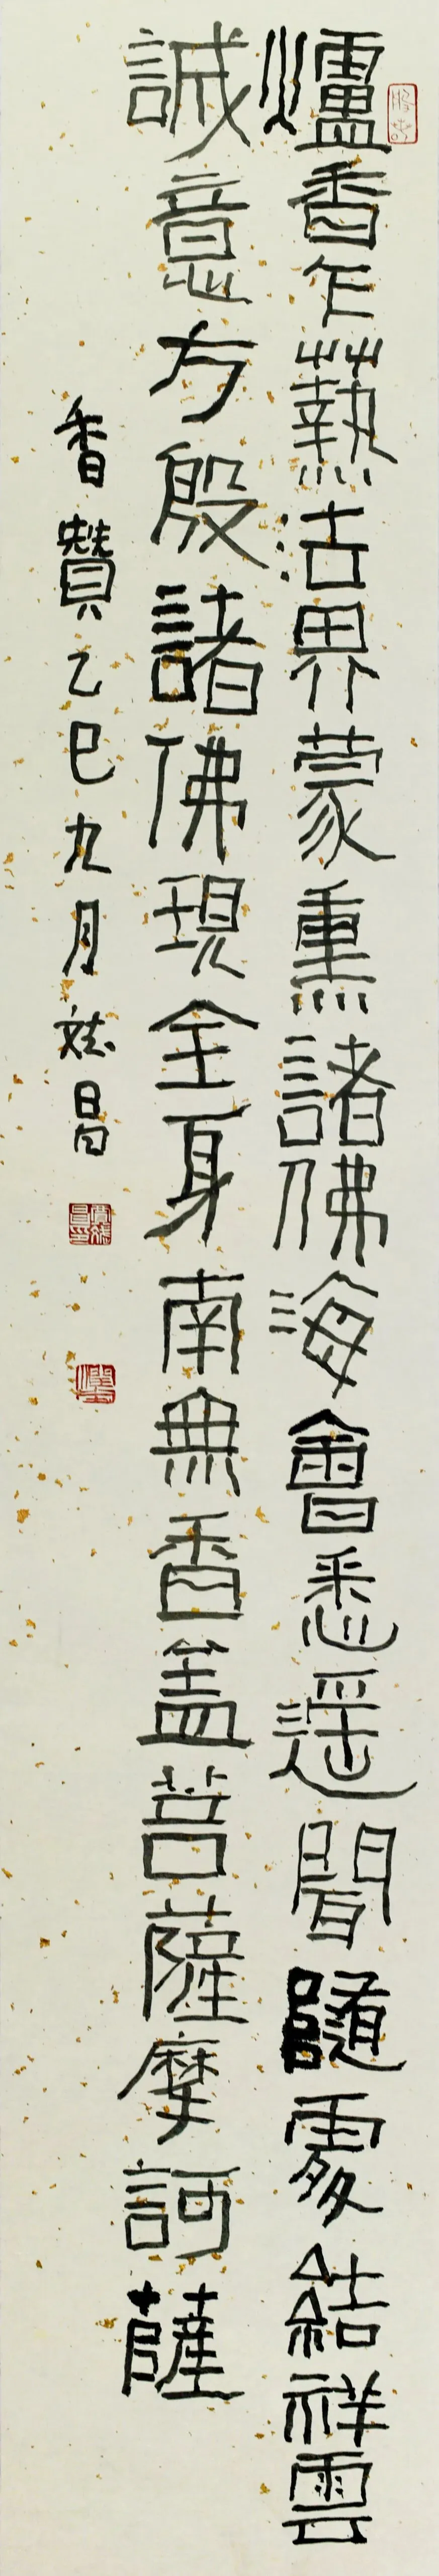 爐香乍爇法界蒙熏諸佛海會悉遥聞隨處結祥雲
誠意方殷諸佛現全身南無香盖菩薩摩訶薩
香贊乙巳九月斌昌